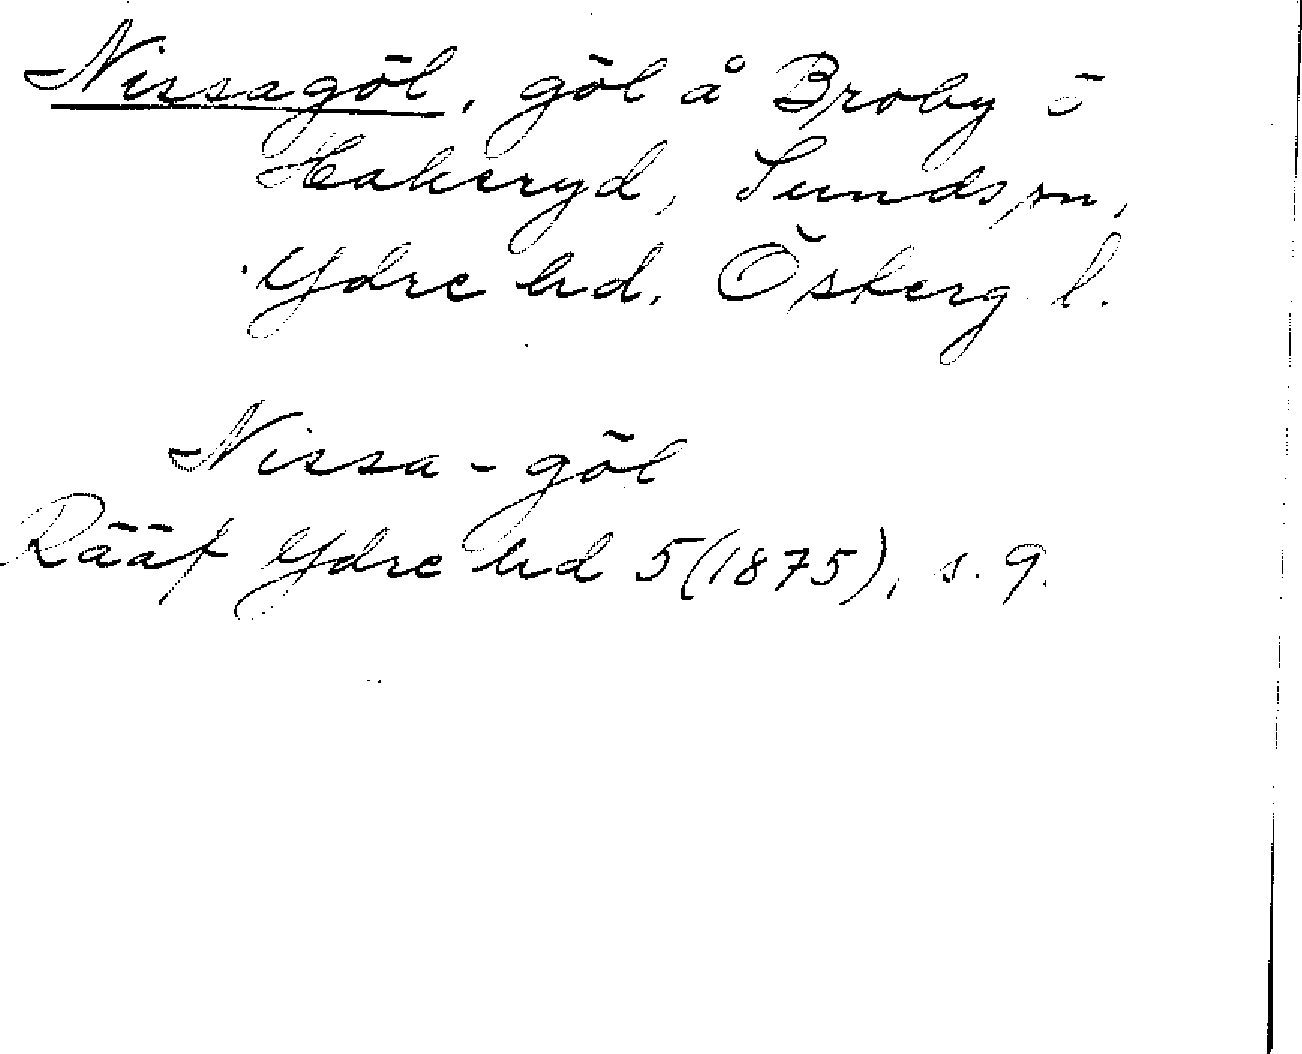 Nissagöl, göl å Broby o
Hakeryd, Sunds sn,
Ydre hd. Östergl.
Nissa-göl
Rääf Ydre hd 5(1875), s. 9.